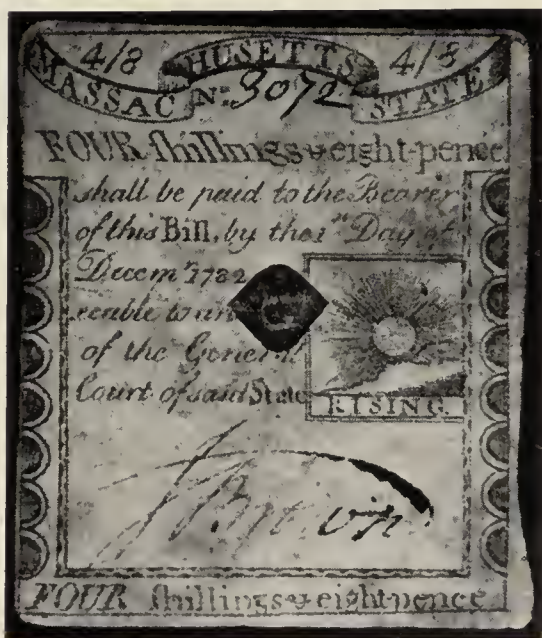 4/8 HUSETTS 4/8
MASSAC Nº 3072 STATE
FOUR ſhillings & eight-pence
shall be paid to the Bearer
of this Bill, by the 1st Day of
Decemr 1782
to an
of the General
Court of said State
RISING.
FOUR ſhillings & eight-pence